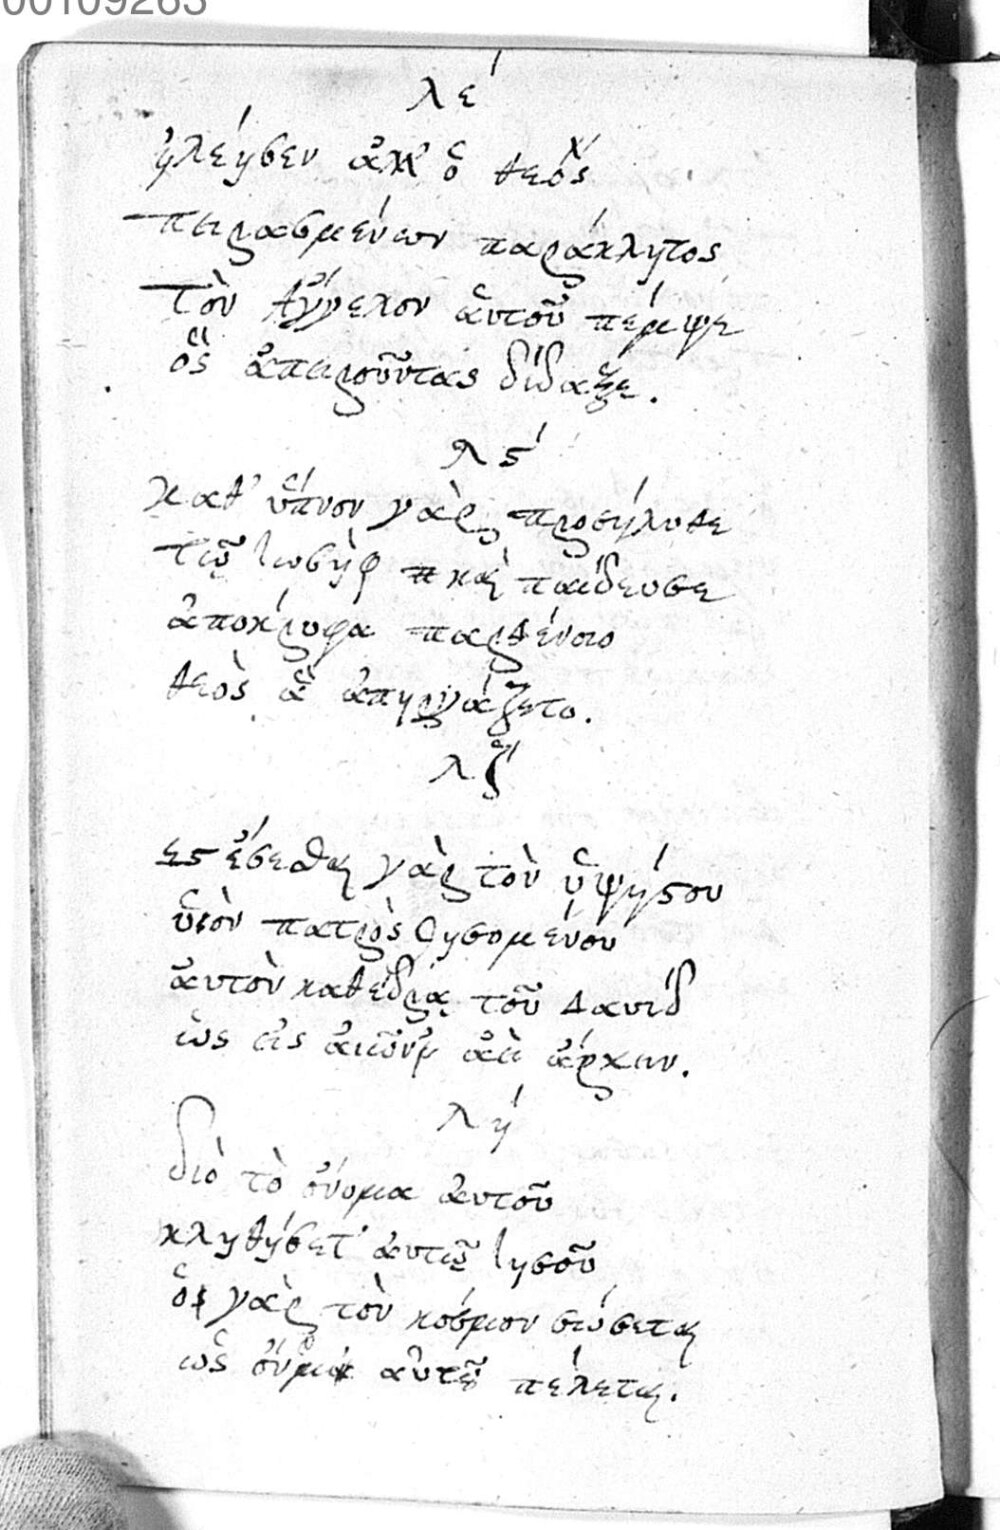 00109263
λέ
ἠλέησεν ἀλλ' ὁ θεὸς
πειρασμένων παράκλητος
Τὸν Ἄγγελον ἁυτοῦ πέμψε
ὃς ἀπειροῦντας δίδαξε.
λϛ́
κατ' ὕπνον γὰρ προσήλυθε
τῷ Ἰωσὴφ καὶ παίδευσε
ἀπόκρυφα παρθένοιο
θεὸς ἃ ἀπηργάζετο.
λζ́
ἔσεσθαι γὰρ τὸν ὑψήστου
ὑιὸν πατρὸς θησομένου
ἀυτὸν καθέδρᾳ τοῦ Δαυίδ
ὡς εἰς ἀιῶν' ἀεὶ ἄρχειν.
λή
διὸ τὸ όύνομα ἀυτοῦ
κληθήσετ' ἀυτῷ Ἰησοῦ
ὃς γὰρ τὸν κόσμον σώσεται
ὡς ὄυνομα ἀυτῷ πέλεται.